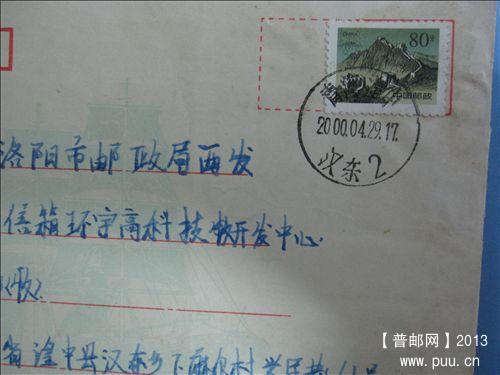 80分
中国邮政
2000.04.29.17
汉东2
洛阳市邮政局西发
信箱环宇高科技开发中心
(收)
省湟中县汉东乡下麻尔村
【普邮网】2013
www.puu.cn